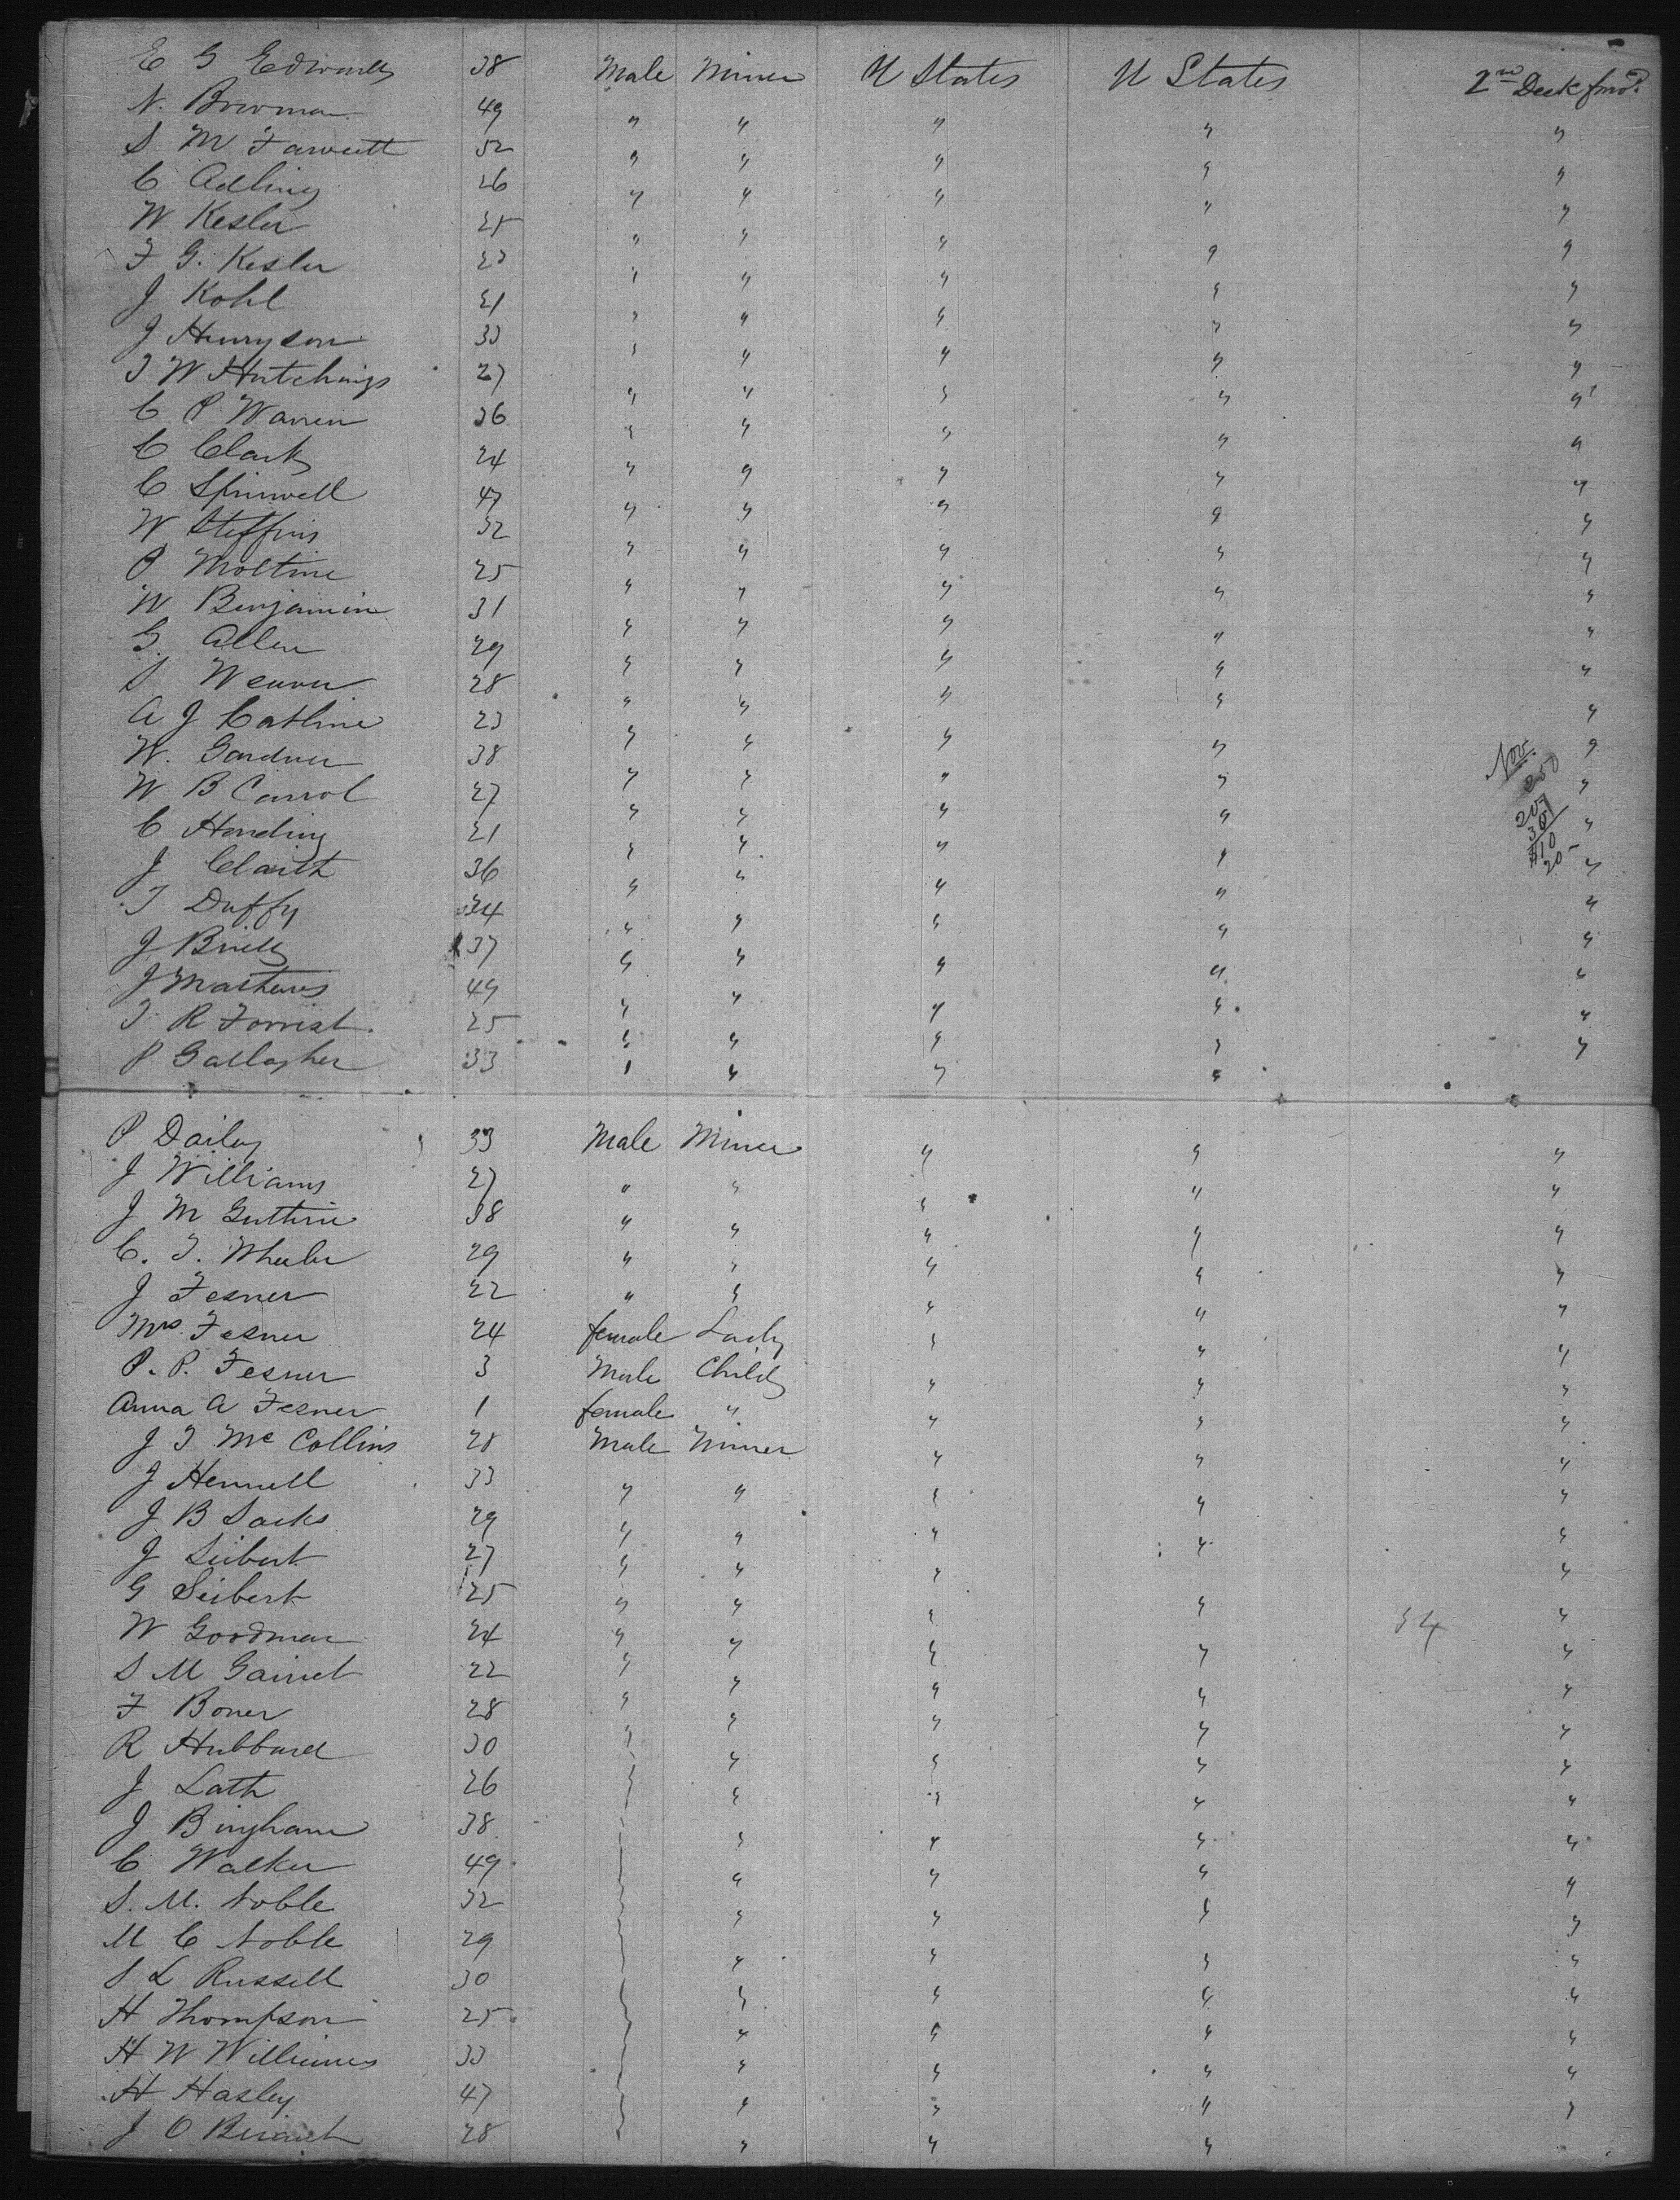 E G Edwards 38 Male Miner U States U States 2nd Deck
N. Bowman 49 " " " " "
S. M Fawcett 32 " " " " "
C Adling 26 " " " " "
W Kesler 25 " " " " "
F G. Kesler 23 " " " " "
J Kohl 21 " " " " "
J Henryson 33 " " " " "
J W Hutchings 27 " " " " "
C P Warren 36 " " " " "
C Clark 24 " " " " "
C 47 " " " " "
W Steffins 32 " " " " "
P Moltine 25 " " " " "
W Benjamin 31 " " " " "
G. Allen 29 " " " " "
S Weaver 28 " " " " "
A J Cathine 23 " " " " "
W. Gardner 38 " " " " "
W B Carrol 27 " " " " "
C Harding 21 " " " " "
J 36 " " " " "
T Duffy 34 " " " " "
J 37 " " " " "
J Mathews 49 " " " " "
T R Forrest 25 " " " " "
P Gallagher 33 " " " "
P Dailey 33 Male Miner " " "
J Williams 27 " " " " "
J M Guthrie 38 " " " " "
C. T. Wheeler 29 " " " " "
J Fesner 22 " " " " "
Mrs Fesner 24 female Lady " " "
P. P. Fesner 3 Male Child " " "
Anna A Fesner 1 female " " " "
J T McCollins 28 Male Miner " " "
J Hennell 33 " " " " "
J B Sacks 29 " " " " "
J Seibert 27 " " " " "
G Seibert 25 " " " " "
W Goodman 24 " " " " "
S M 22 " " " " "
F Boner 28 " " " " "
R Hubbard 30 " " " " "
J Lath 26 " " " " "
J Bingham 38 " " " "
C Walker 49 " " " "
S. M. Noble 32 " " " "
M C Noble 29 " " " "
S L Russell 30 " " " "
H Thompson 25 " " " "
H W Williams 33 " " " "
H Hasley 47 " " " "
J O 28 " " "